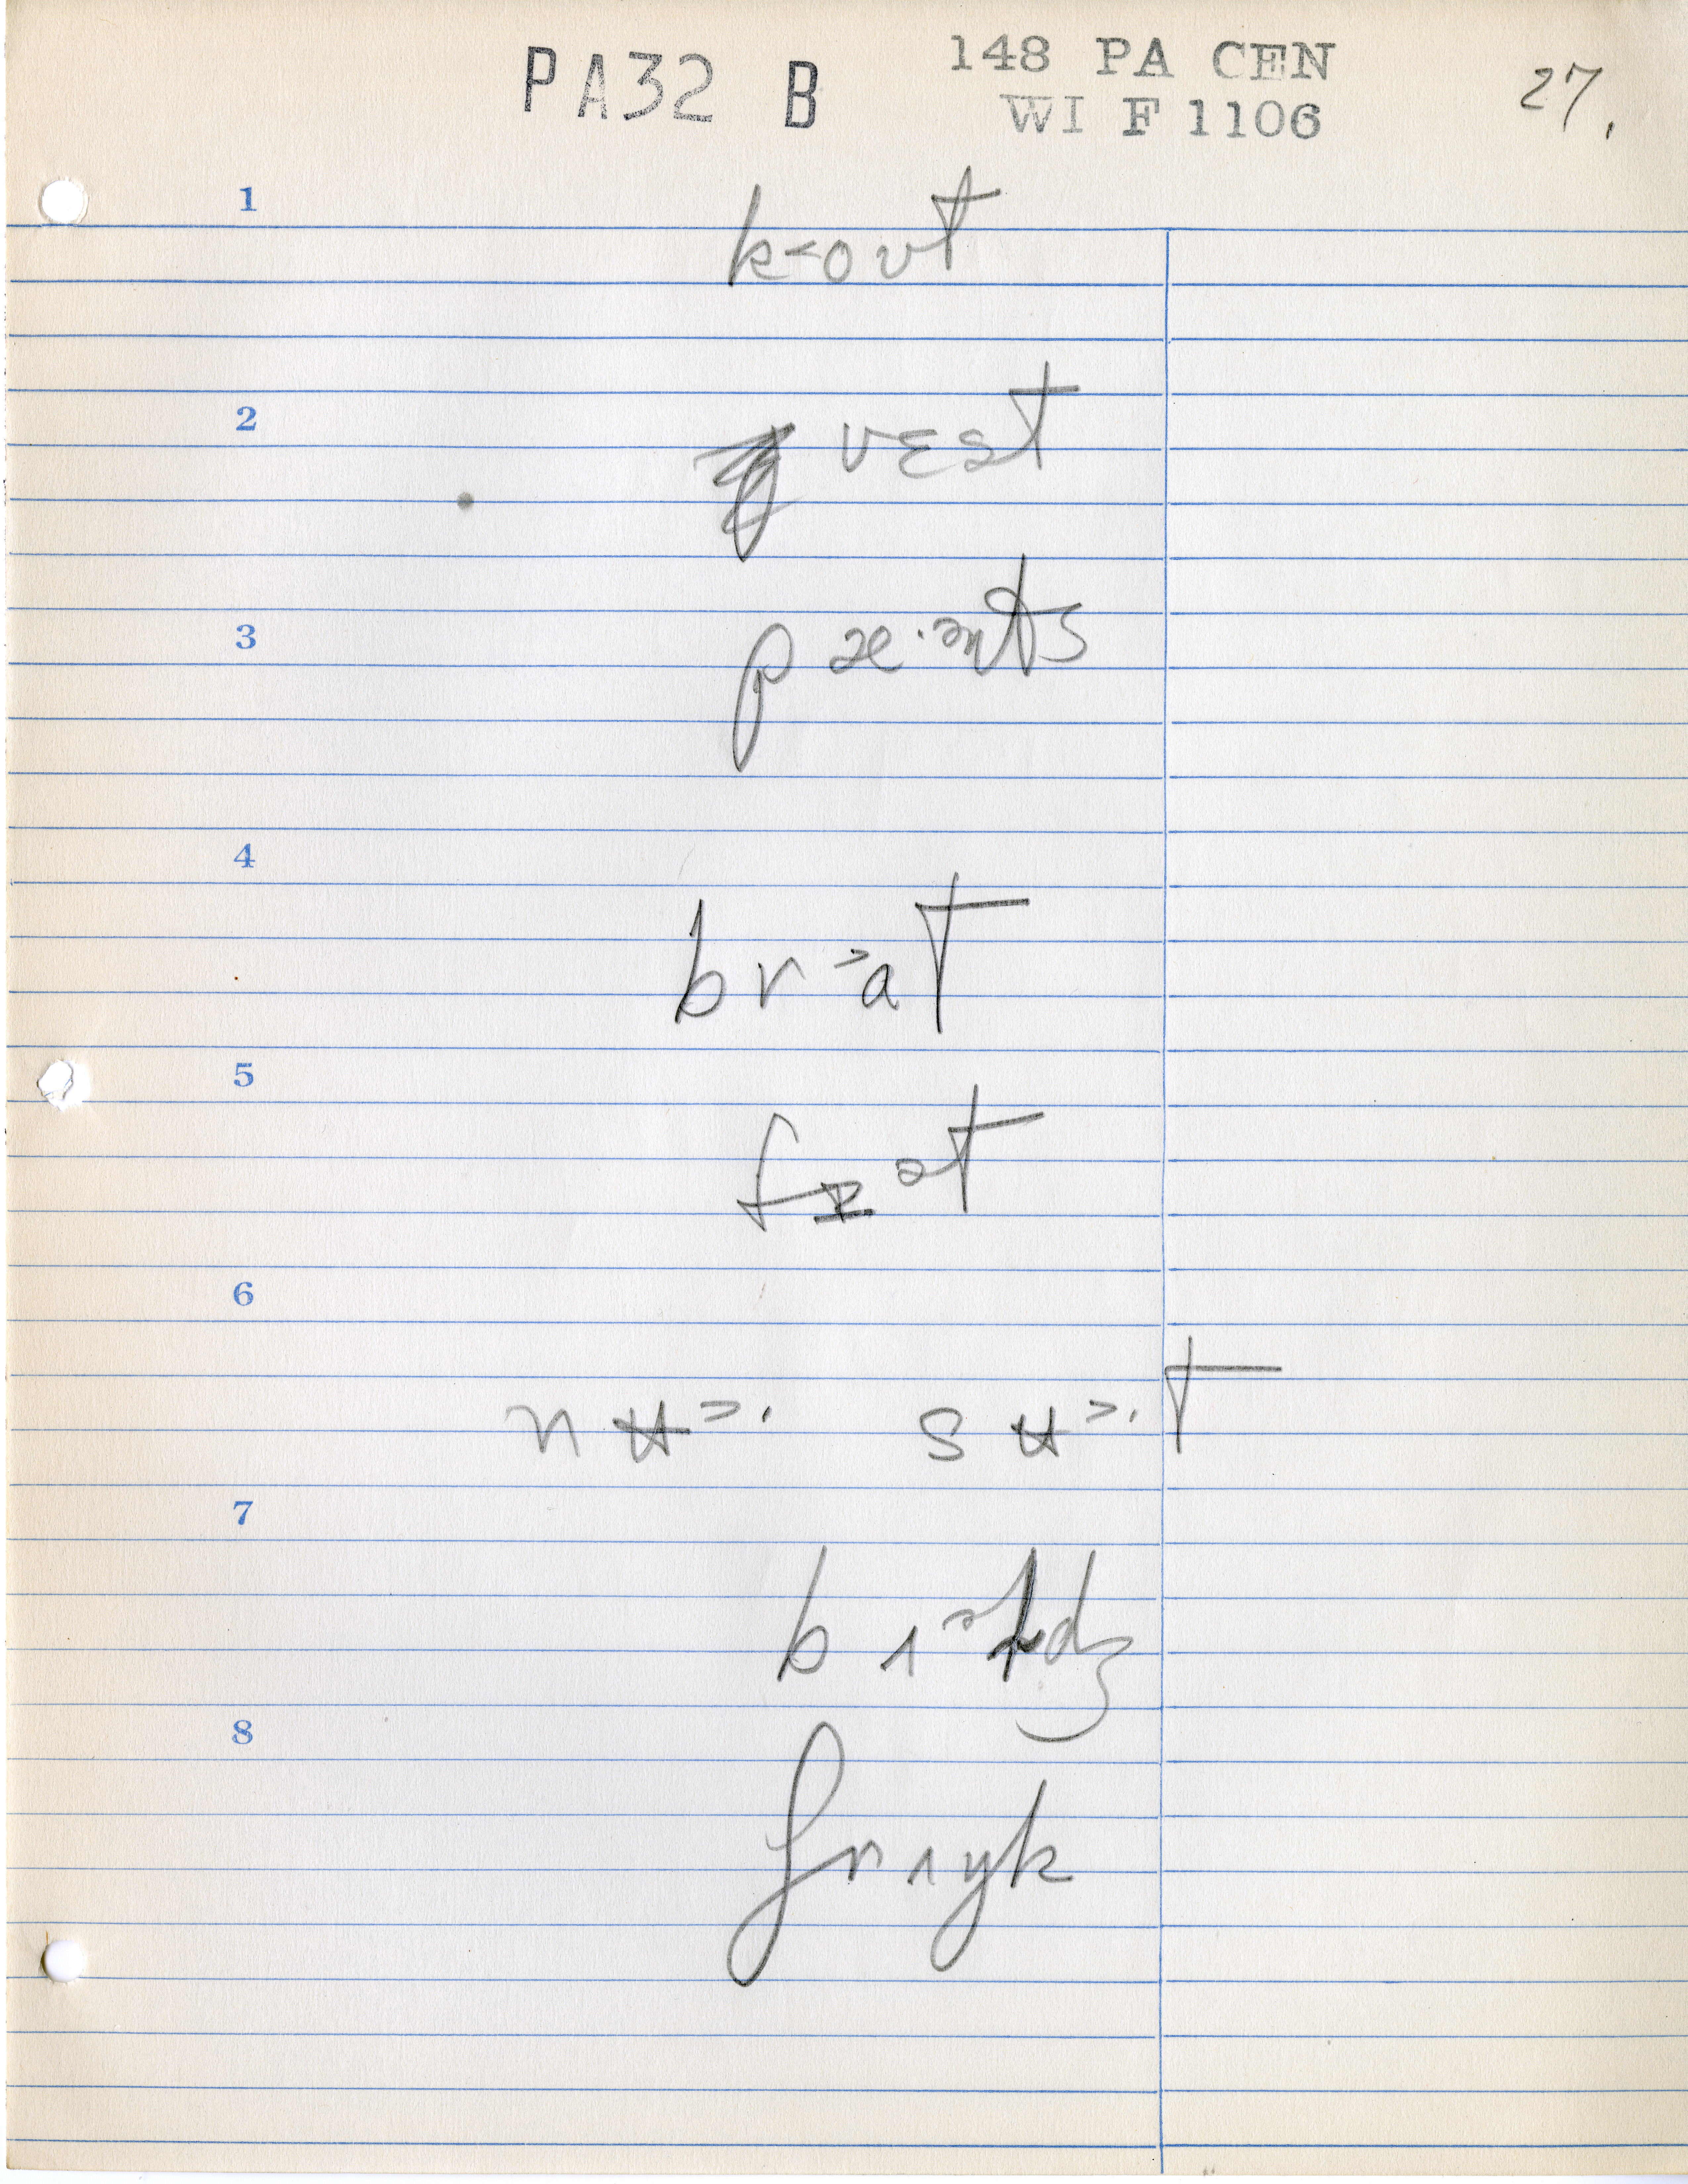 PA32 B
148 PA CEN
WI F 1106
27.
1
k<oʊt
2
vɛst
3
pæ·ənts
4
br˃aT
5
fɪət
6
nʉ˃· sʉ˃·T
7
8